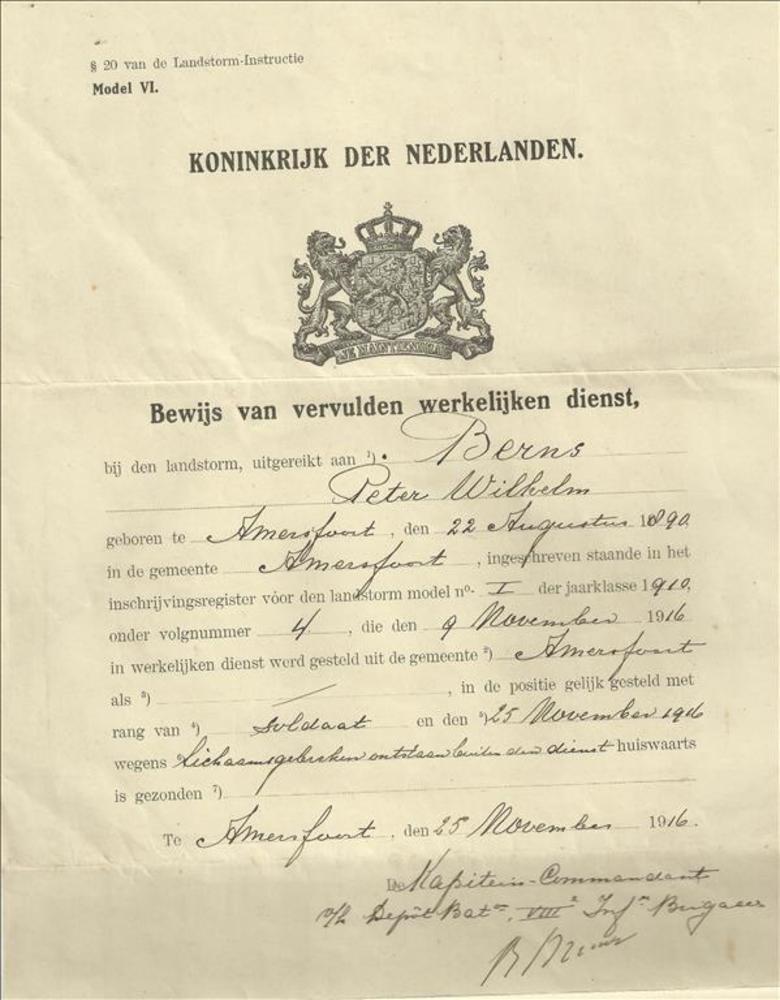 § 20 van de Landstorm-Instructie
Model VI.
KONINKRIJK DER NEDERLANDEN.
JE MAINTIENDRAI
Bewijs van vervulden werkelijken dienst,
bij den landstorm, uitgereikt aan ¹). Berns
Peter Wilhelm
geboren te Amersfoort, den 22 Augustus 1890
in de gemeente Amersfoort, ingeschreven staande in het
inschrijvingsregister vóor den landstorm model nº. I der jaarklasse 1910,
onder volgnummer 4, die den 9 November 1916
in werkelijken dienst werd gesteld uit de gemeente ²) Amersfoort
als ³) —, in de positie gelijk gesteld met
rang van ⁴) soldaat en den ⁵) 25 November 1916
wegens lichaamsgebreken ontstaan buiten den dienst huiswaarts
is gezonden ⁷)
Te Amersfoort, den 25 November 1916.
De Kapitein-Commandant
v/h Depôt Bat. VIII Inf. Brigade